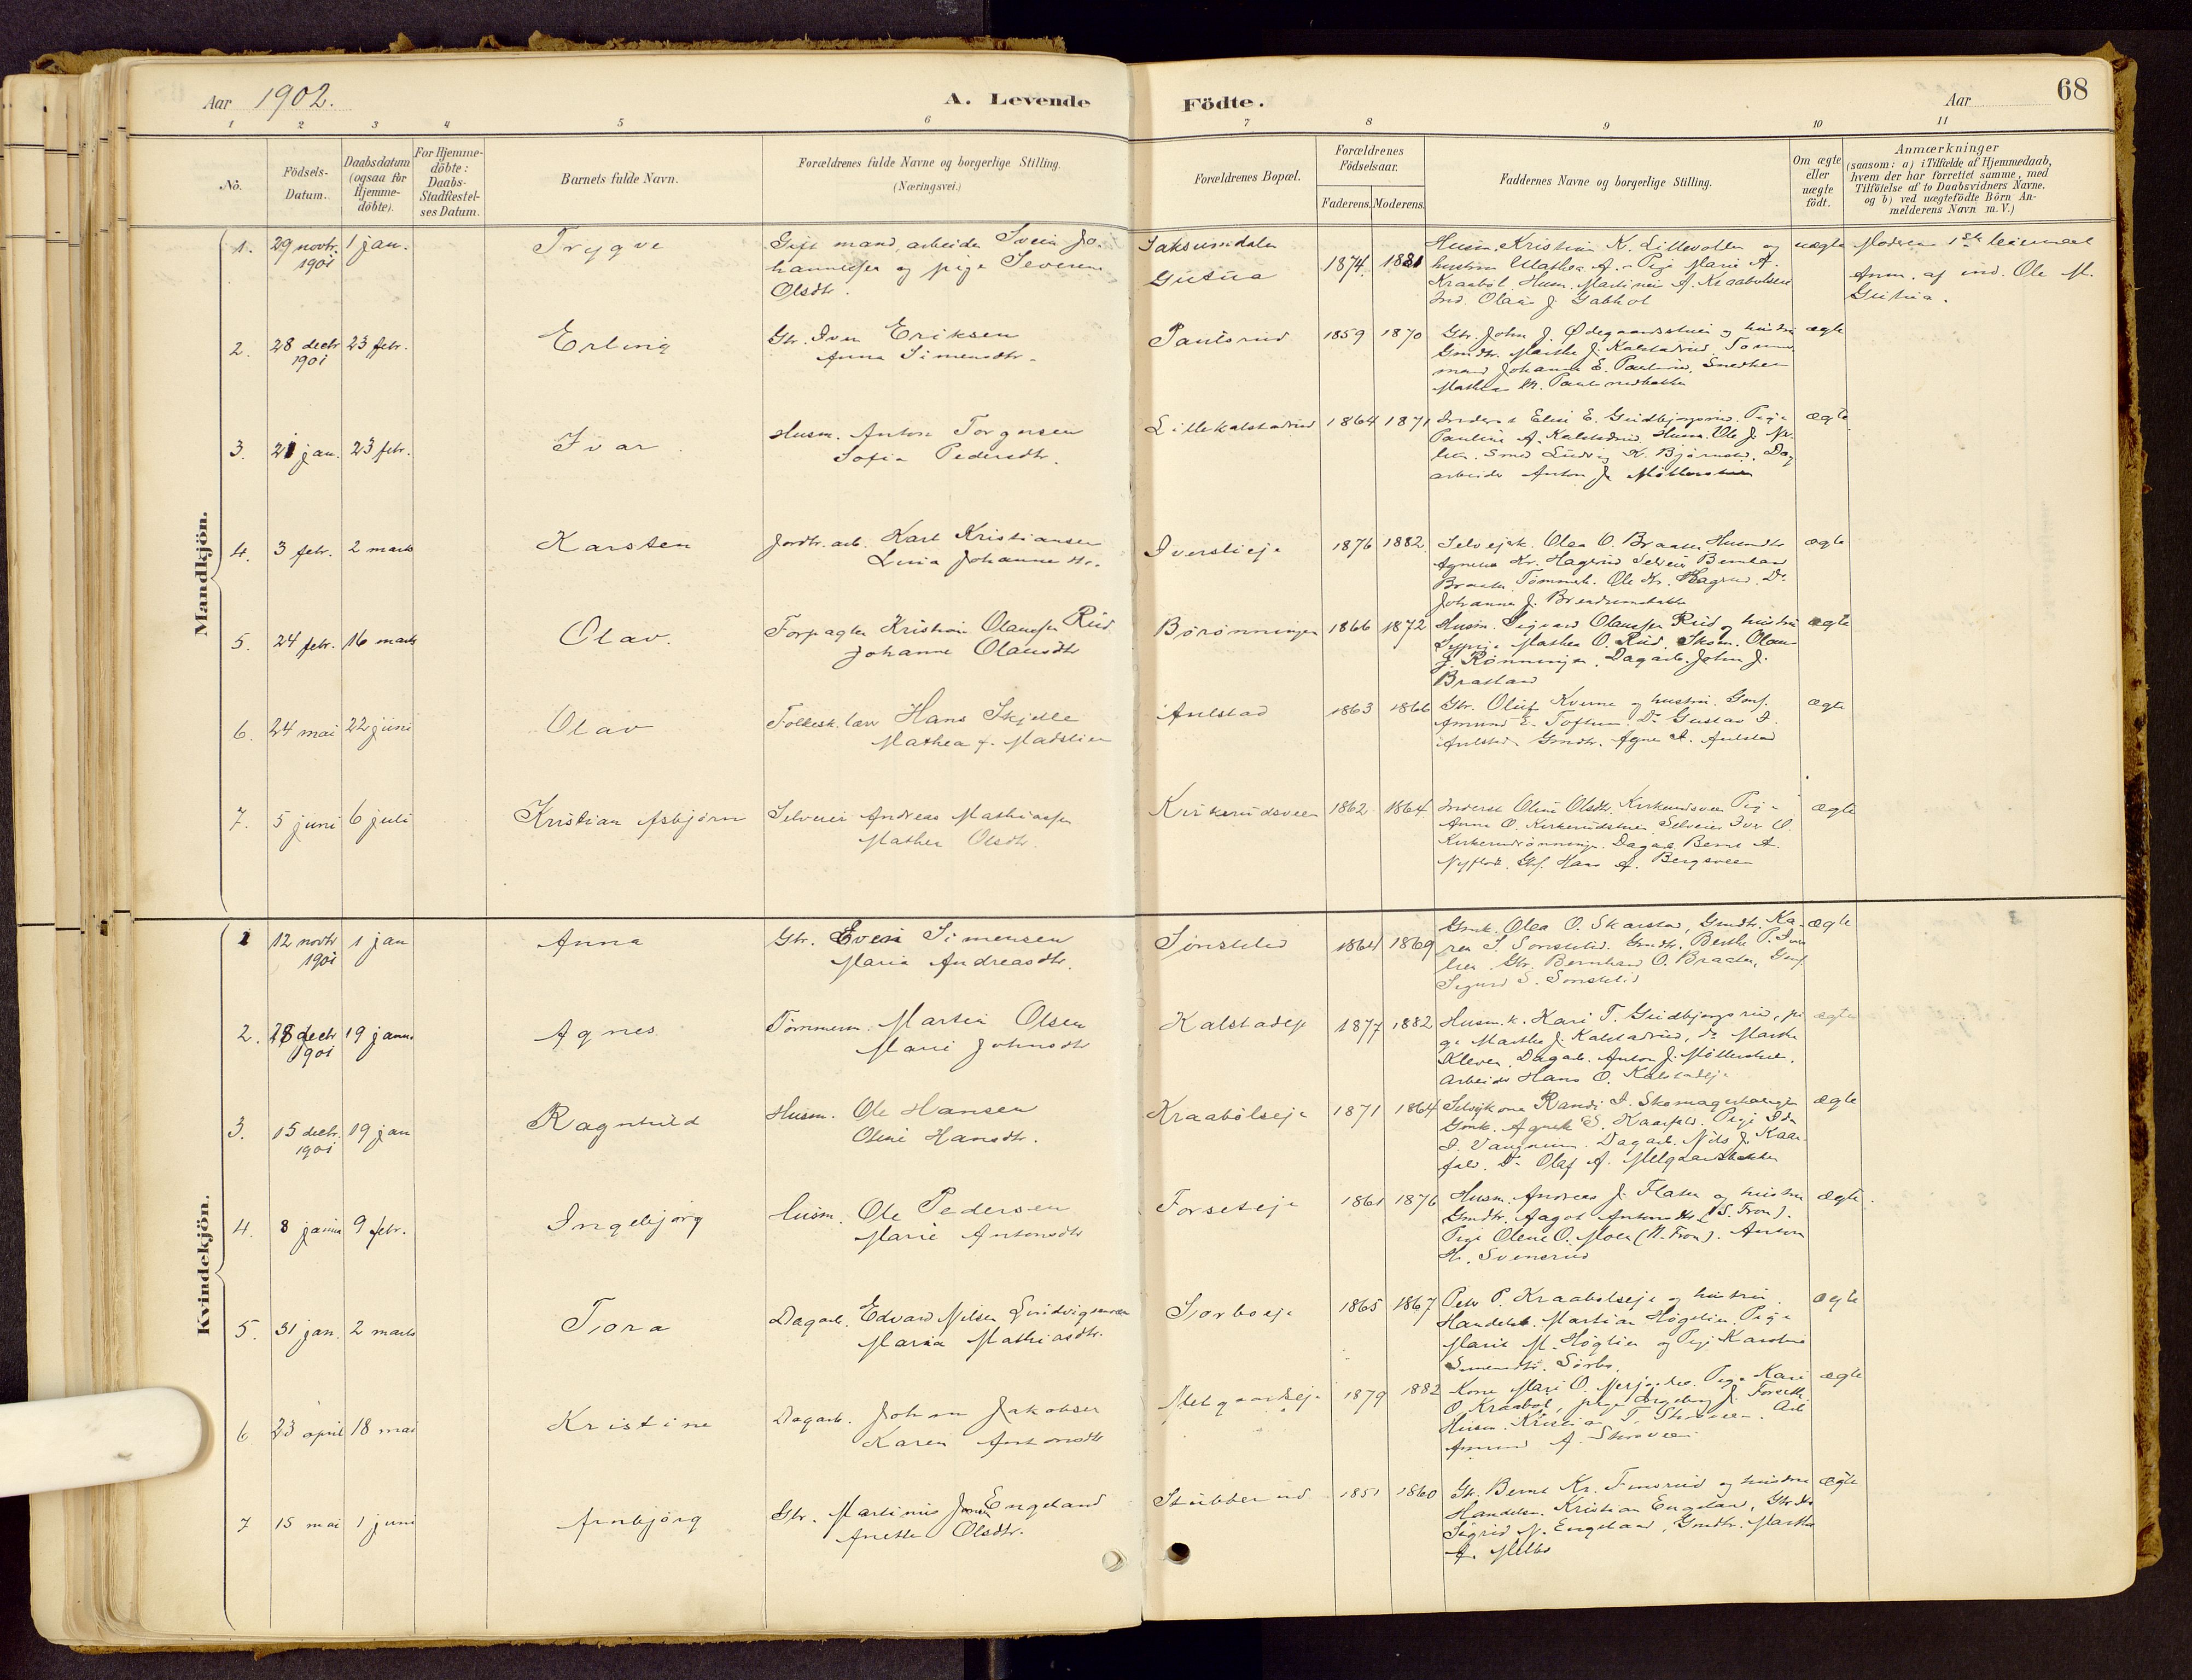 Aar 1902.
A. Levende Födte.
Aar
68
1 2 3 4 5 6 7 8 9 10 11
No.
Födsels-Datum.
Daabsdatum (ogsaa for Hjemme-döbte).
For Hjemme-döbte: Daabs-Stadfæstel-ses Datum.
Barnets fulde Navn.
Forældrenes fulde Navne og borgerlige Stilling.
(Næringsvei.)
Forældrenes Bopæl.
Forældrenes Födselsaar.
Faderens. Moderens.
Faddernes Navne og borgerlige Stilling.
Om ægte eller uægte födt.
Anmærkninger
(saasom: a) i Tilfælde af Hjemmedaab,
hvem der har forrettet samme, med
Tilföielse af to Daabsvidners Navne,
og b) ved uægtefödte Börn An-
melderens Navn m.V.)
Mandkjön.
1. 29 novbr. 1901 1 jan. Trygve
Gift mand, arbeider Svein Jo-
hannessen og pige Severine
Olsdtr.
Saksumdalen
Gutua
1874. 1881
Husm. Kristian K. Lillevolden og
hustru Mathea A. Pige Marie A.
Kraabøl. Husm.
Ind. Olaus J. Gabhol
uægte
Moderen 1ste leiermaal
Anm. af ind. Ole M.
Gutua.
2. 28 decbr 1901 23 febr. Erling
Gbr. Iver Eriksen
Anna Simensdtr.
Paulsrud 1859 1870
Gbr. John J. Ødegaardsstuen og hustru
Gmdtr. Marthe J. Kalstadrud. Tømmer-
mand Johannes E. Paulsrud. Snedker
ægte
3. 21 jan. 23 febr. Ivar.
Husm. Anton Torgersen
Sofie Pedersdtr.
Lillekalstadrud 1864 1871
Inderst Elise E. Guidbjørgsrud. Pige
Pauline A. Kalstadrud. Husm. Ole J.
Smed Ludvig K. Bjørnstad. Dag-
arbeider Anton J. Møllerstuen
ægte
4. 3 febr. 2 marts Karsten
Jordbr. arb. Karl Kristiansen
Lina Johannesdtr.
Iverslieje 1876 1882
Selvejerk. Olea O. Braaten. Husmdtr
Agnethe Kr. Hagerud Selveier Bernhard
Braaten Tømmerh. Ole Kr. Hagrud. Do
Johannes J. Brendrumsbakken
ægte
5. 24 febr. 16 marts Olav.
Forpagter Kristian Olaussen Rud
Johanne Olausdtr
Børønningen 1866 1872
Husm. Sigvard Olaussen Rud og hustru
Sypige Mathea O. Rud. Skom. Olaus
J. Rønningen. Dagarb. John J.
Brastad
ægte
6. 24 mai 22 juni Olav
Folkesk. lærer Hans Skjelle
Mathea J. Madslien
Aulstad 1863 1866
Gbr. Oluf Kverne og hustru. Gmf.
Amund E. Toftum. Do Gustav I.
Aulstad Gmdtr. Agne A. Aulstad
ægte
7. 5 juni 6 juli Kristian Asbjørn
Selveier Andreas Mathiassen
Mathea Olsdtr.
Kirkerudsveen 1862 1864
Inderst Oline Olsdtr. Kirkerudsveen Pige
Anne O. Kirkerudstuen. Selveier Iver O.
Kirkerudrønningen. Dagarb. Bernt A.
Nyflodt. Gbf. Hans A. Bergsveen
ægte
Kvindekjön.
1 12 novbr 1901 1 jan Anna
Gbr. Even Simensen
Maria Andreasdtr.
Sønstelid 1864 1869
Gmk. Olea O. Skarstad, Gmdtr. Ka-
ren S. Sønstelid. Gmdtr. Berthe P. Iver-
lien Gbr. Bernhard O. Braaten, Gmf.
Sigurd S. Sønstelid
ægte
2. 28 decbr 1901 19 janu. Agnes
Tømmerm. Martin Olsen
Marie Johnsdtr
Kalstadeje 1877 1882
Husm.k. Kari T. Guidbjørgsrud, pi-
ge Marthe J. Kalstadrud, Do Marthe
Kleven. Dagarb. Anton J. Møllerstuen.
Arbeider Hans O. Kalstadeje
ægte
3. 15 decbr. 1901 19 jan Ragnhild
Husm. Ole Hansen
Oline Hansdtr.
Kraabølseje 1871 1864
Selvejkone Randi I. Skomagerhaugen
Gmk. Agnete S. Kaarfald. Pige Ida
I. Vangnum. Dagarb. Nils J. Kaar-
fald. Do Olaf A. Melgaardsbakken
ægte
4. 8 janua 9 febr. Ingebjørg
Husm. Ole Pedersen
Marie Antonsdtr
Forseteje 1861 1876
Husm. Andreas J. Flaten og hustru
Gmdtr. Aagot Antonsdtr (S. Fron).
Pige Oline O. Moen (N. Fron). Anton
H. Svensrud
ægte
5. 31 jan. 2 marts Tora
Dagarb. Edvard Nilsen Ludvigsveen
Maria Mathiasdtr.
Sørboeje 1865 1867
Peter P. Kraabølseje og hustru.
Handelsb. Martian Høgslien. Pige
Marie M. Høglien og Pige Karoline
Simensdtr. Sørbo.
ægte
6 23 april 18 mai Kristine
Dagarb. Johan Jakobsen
Karen Antonsdtr
Melgaardseje 1879 1882
Kone Mari O. Pige Kari
O. Kraabøl, pige Ingeborg J. Forseth
Husm. Kristian T. Skroveen. Arb
Amund A. Skroveen
ægte
7 15 mai 1 juni Arnbjørg
Gbr. Martinus Jonsen Engeland
Anette Olsdtr.
Stubberud 1851 1860
Gbr. Bernt Kr. Finsrud og hustru
Handelsm. Kristian Engeland, Gbr.dtr
Sigrid N. Engeland, Gmdtr. Marthe
A. Melbø
ægte